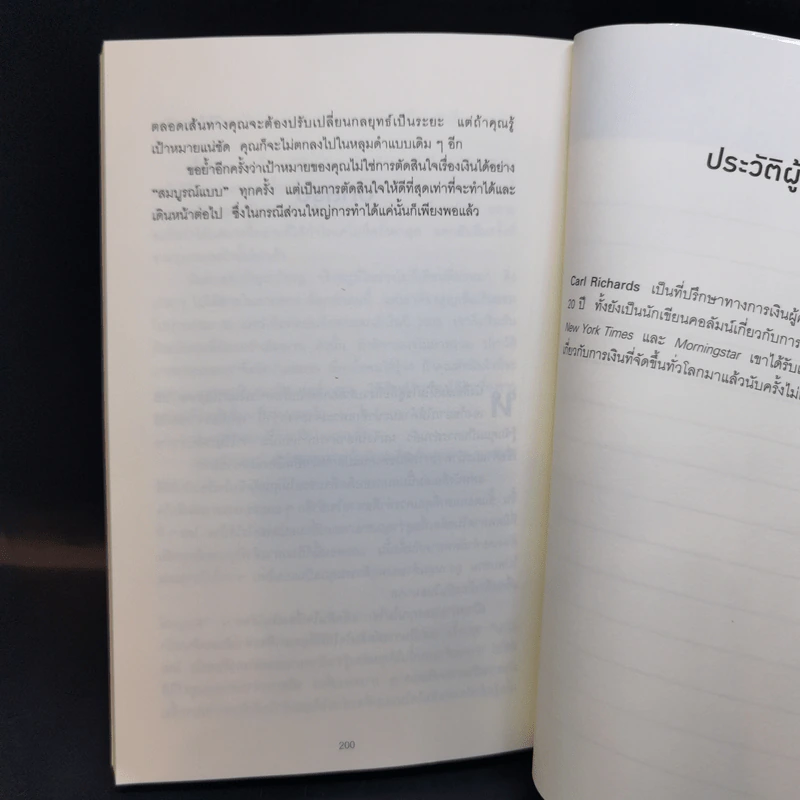 ตลอดเส้นทางคุณจะต้องปรับเปลี่ยนกลยุทธ์เป็นระยะ แต่ถ้าคุณรู้
เป้าหมายแน่ชัด คุณก็จะไม่ตกลงไปในหลุมดำแบบเดิม ๆ อีก
ขอย้ำอีกครั้งว่าเป้าหมายของคุณไม่ใช่การตัดสินใจเรื่องเงินได้อย่าง
“สมบูรณ์แบบ” ทุกครั้ง แต่เป็นการตัดสินใจให้ดีที่สุดเท่าที่จะทำได้และ
เดินหน้าต่อไป ซึ่งในกรณีส่วนใหญ่การทำได้แค่นั้นก็เพียงพอแล้ว
200
ประวัติผู้
Carl Richards เป็นที่ปรึกษาทางการเงินผู้
20 ปี ทั้งยังเป็นนักเขียนคอลัมน์เกี่ยวกับการ
New York Times และ Morningstar เขาได้รับ
เกี่ยวกับการเงินที่จัดขึ้นทั่วโลกมาแล้วนับครั้งไม่